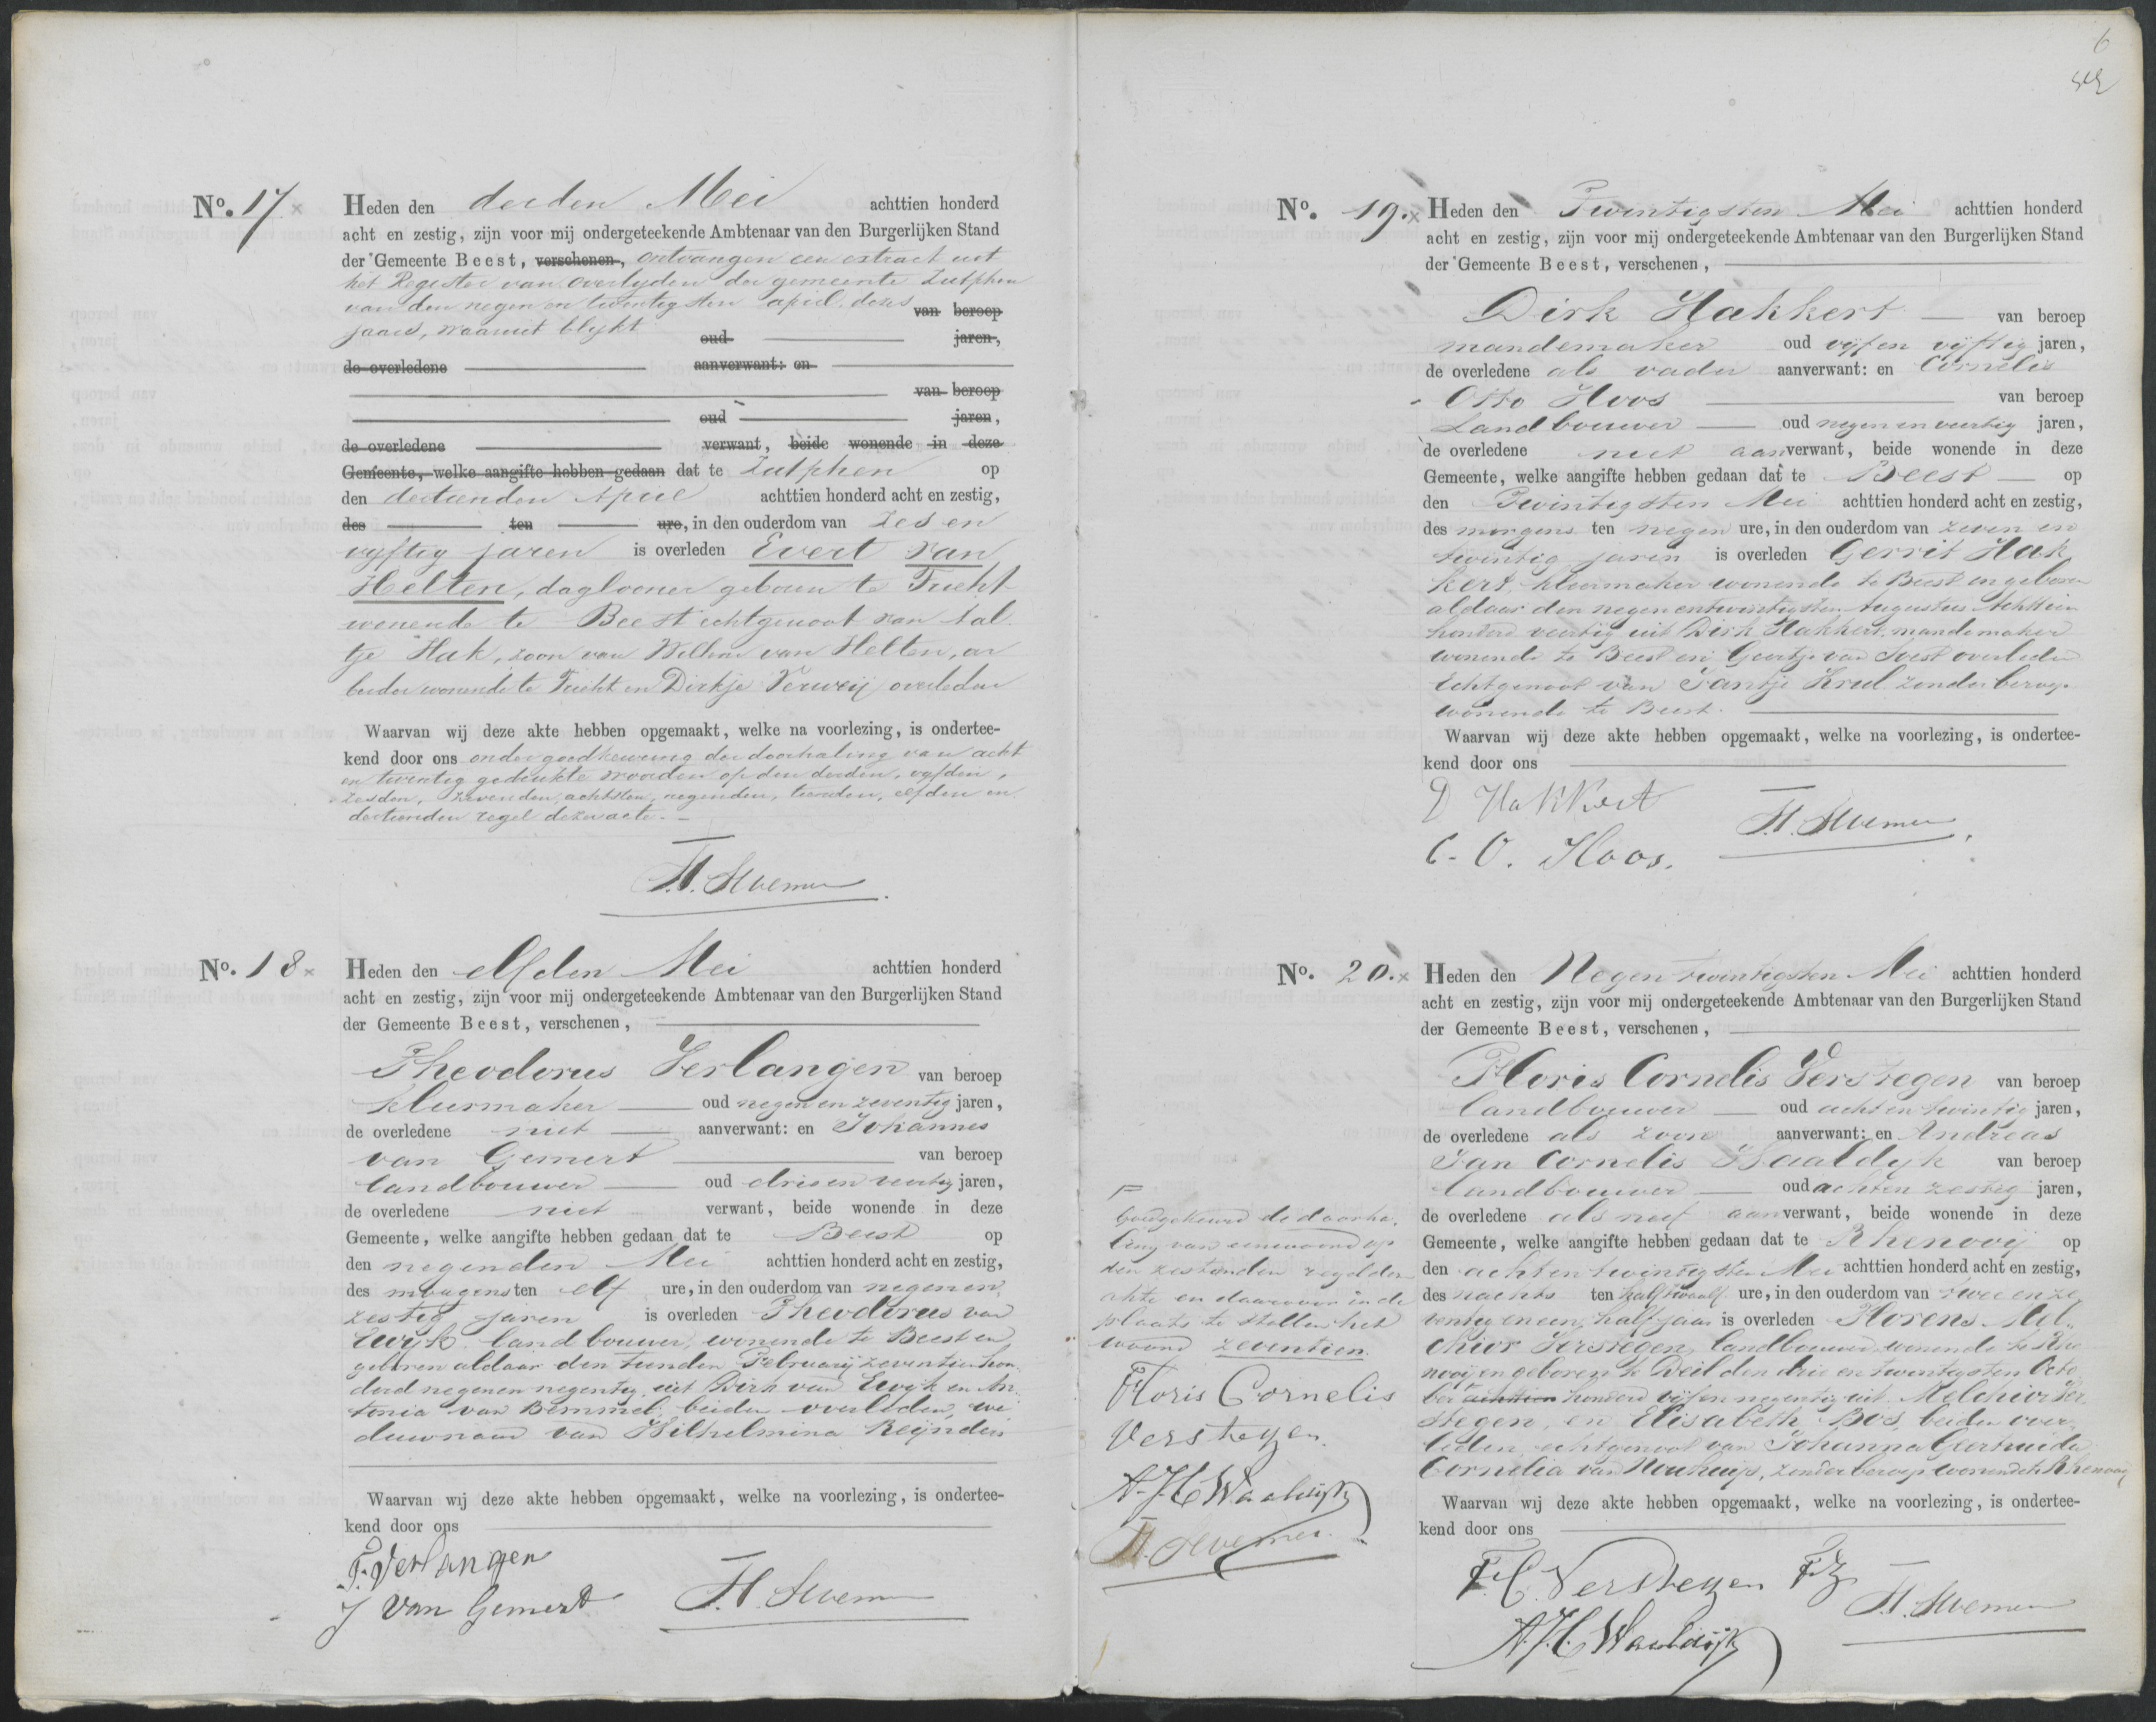 No. 17 x
Heden den derden Mei achttien honderd
acht en zestig, zijn voor mij ondergeteekende Ambtenaar van den Burgerlijken Stand
der Gemeente Beest, verschenen, ontvangen een extract uit
het Register van overlijden der gemeente Zutphen
van den negen en twintigsten april dezes van beroep
jaars, waaruit blijkt oud jaren,
de overledene aanverwant: en
van beroep
oud jaren,
de overledene verwant, beide wonende in deze
Gemeente, welke aangifte hebben gedaan dat te Zutphen op
den dertienden April achttien honderd acht en zestig,
des ten ure, in den ouderdom van zes en
vijftig jaren is overleden Evert van
Helten, daglooner geboren te Tricht
wonende te Beest echtgenoot van Aal
tje Hak, zoon van Willem van Helten, ar
beider wonende te Tricht en Dirkje Verweij overleden
Waarvan wij deze akte hebben opgemaakt, welke na voorlezing, is ondertee-
kend door ons onder goedkeuring der doorhaling van acht
en twintig gedrukte woorden op den derden, vijfden,
zesden, zevenden, achtsten, negenden, tienden, elfden en
dertienden regel dezer acte.
No. 18 x
Heden den elfden Mei achttien honderd
acht en zestig, zijn voor mij ondergeteekende Ambtenaar van den Burgerlijken Stand
der Gemeente Beest, verschenen,
Theodorus Verlangen van beroep
kleermaker oud negen en zeventig jaren,
de overledene niet aanverwant: en Johannes
van Gemert van beroep
landbouwer oud drie en veertig jaren,
de overledene niet verwant, beide wonende in deze
Gemeente, welke aangifte hebben gedaan dat te Beest op
den negenden Mei achttien honderd acht en zestig,
des morgens ten elf ure, in den ouderdom van negen en
zestig jaren is overleden Theodorus van
Ewijk landbouwer, wonende te Beest en
geboren aldaar den tienden Februarij zeventien hon
derd negen en negentig, uit Dirk van Ewijk en An
tonia van Bemmel, beiden overleden, we
duwnaar van Wilhelmina Reijnders
Waarvan wij deze akte hebben opgemaakt, welke na voorlezing, is ondertee-
kend door ons
T. Verlangen
J van Gemert
6
No. 19. x
Heden den Twintigsten Mei achttien honderd
acht en zestig, zijn voor mij ondergeteekende Ambtenaar van den Burgerlijken Stand
der Gemeente Beest, verschenen,
Dirk Hakkert van beroep
mandemaker oud vijf en vijftig jaren,
de overledene als vader aanverwant: en Cornelis
Otto Hoos van beroep
Landbouwer oud negen en veertig jaren,
de overledene niet aanverwant, beide wonende in deze
Gemeente, welke aangifte hebben gedaan dat te Beest op
den Twintigsten Mei achttien honderd acht en zestig,
des morgens ten negen ure, in den ouderdom van zeven en
twintig jaren is overleden Gerrit Hak
kert, kleermaker wonende te Beest en geboren
aldaar den negen en twintigsten Augustus Achttien
honderd veertig uit Dirk Hakkert, mandemaker
wonende te Beest en Geertje van Soest overleden
Echtgenoot van Jantje Krul zonder beroep
wonende te Beest.
Waarvan wij deze akte hebben opgemaakt, welke na voorlezing, is ondertee-
kend door ons
D Hakkert
C. O. Hoos.
No. 20. x
Heden den Negen twintigsten Mei achttien honderd
acht en zestig, zijn voor mij ondergeteekende Ambtenaar van den Burgerlijken Stand
der Gemeente Beest, verschenen,
Floris Cornelis Verstegen van beroep
landbouwer oud acht en twintig jaren,
de overledene als zoon aanverwant: en Andreas
Jan Cornelis Waaldijk van beroep
landbouwer oud acht en zestig jaren,
de overledene als neef aanverwant, beide wonende in deze
Gemeente, welke aangifte hebben gedaan dat te Rhenooij op
den acht en twintigsten Mei achttien honderd acht en zestig,
des nachts ten half twaalf ure, in den ouderdom van twee en ze
ventig en een half jaar is overleden Florens Mel
chior Verstegen, landbouwer wonende te Rhe
nooij en geboren te Deil den drie en twintigsten Octo
ber achttien honderd vijf en negentig uit Melchior Ver
stegen, en Elisabeth Bos, beiden over
leden, echtgenoot van Johanna Geertruida
Cornelia van Nouhuijs, zonder beroep wonende te Rhenooij
Waarvan wij deze akte hebben opgemaakt, welke na voorlezing, is ondertee-
kend door ons
F. C. Verstegen Fz
A.J.C Waaldijk
Goedgekeurd de doorha
ling van een woord op
den zestienden regel der
akte en daarvoor in de
plaats te stellen het
woord zeventien.
Floris Cornelis
Verstegen.
A.J.C Waaldijk